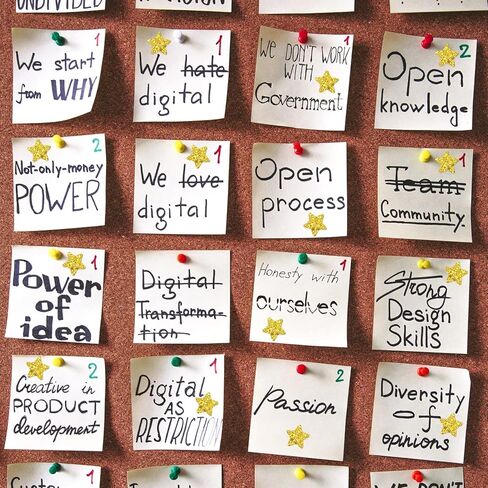 1
We start
from WHY
1
We hate
digital
1
WE DON'T WORK
WITH
Government
2
Open
knowledge
2
Not-only-money
POWER
1
We love
digital
Open
process
1
Team
Community
1
Power
of
idea
Digital
Transforma-
tion
1
Honesty with
ourselves
Strong
Design
Skills
2
Creative in
PRODUCT
development
1
Digital
AS
RESTRICTION
2
Passion
Diversity
of
opinions
1
1
WE DON'T